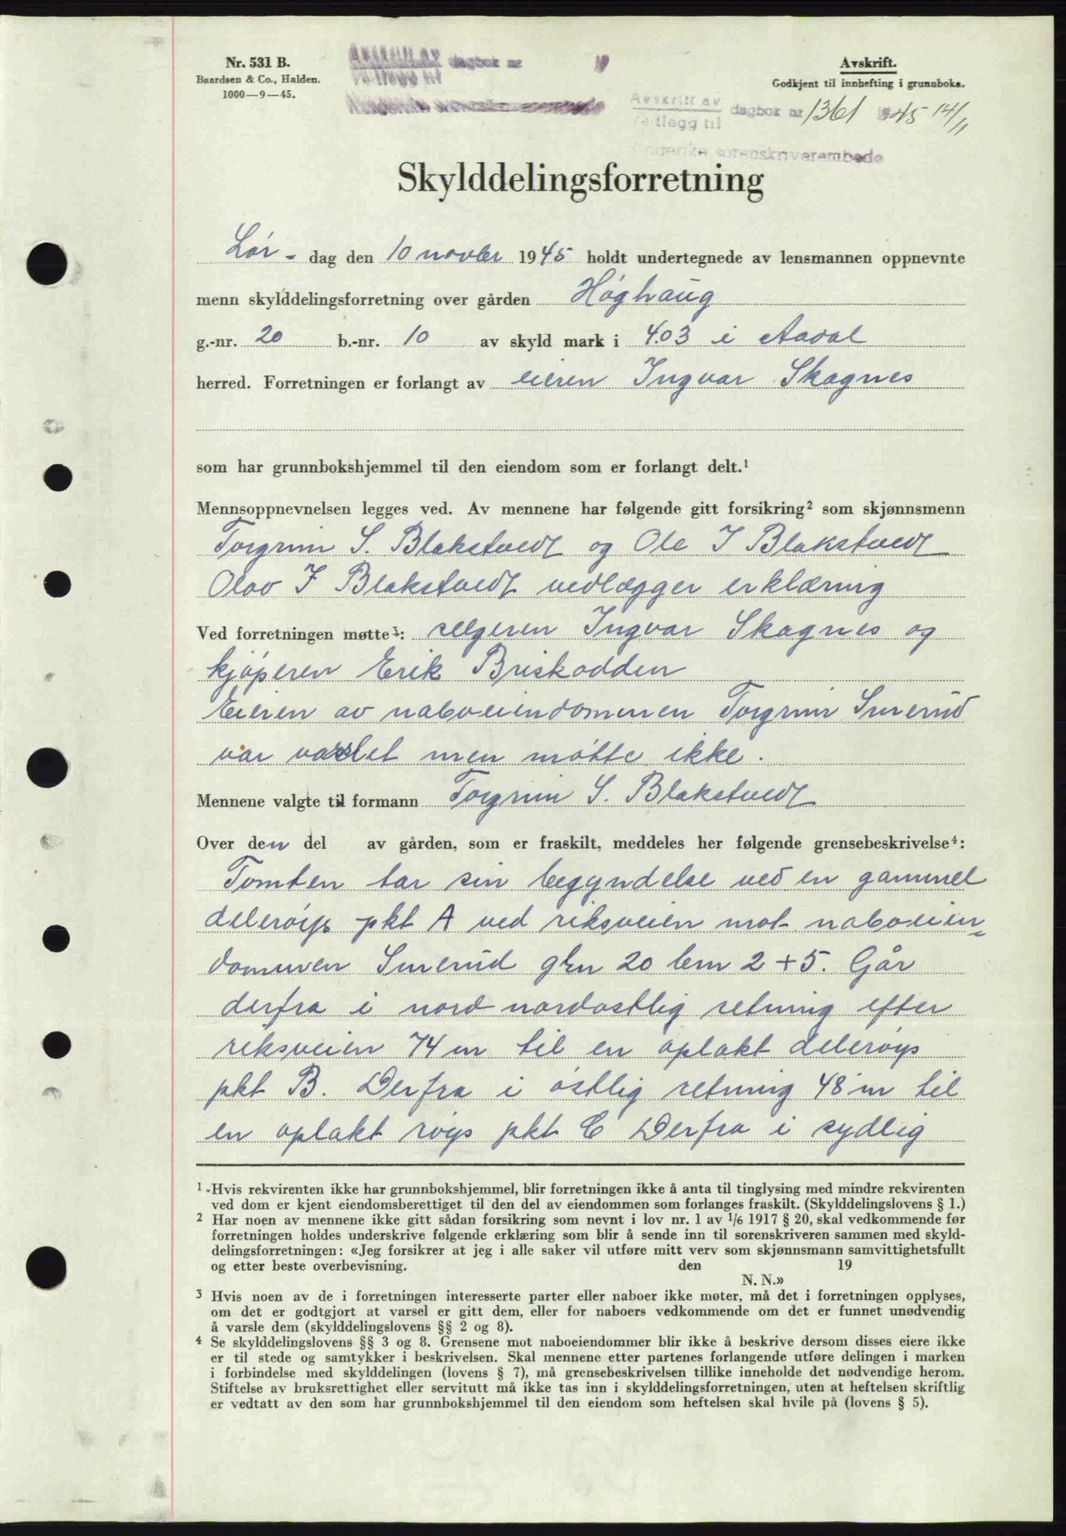 Nr. 531 B.
Baardsen & Co., Halden.
1000—9—45.
dagbok nr 19
Avskrift.
Godkjent til innhefting i grunnboka.
Avskrift av
Vedlegg til
dagbok nr 1361 1945 14/11
Ringerike sorenskriverembede
Skylddelingsforretning
Lør- dag den 10 novbr 1945 holdt undertegnede av lensmannen oppnevnte
menn skylddelingsforretning over gården Høghaug
g.-nr. 20 b.-nr. 10 av skyld mark i 4.03 i Aadal
herred. Forretningen er forlangt av eieren Ingvar Skagnes
som har grunnbokshjemmel til den eiendom som er forlangt delt.¹
Mennsoppnevnelsen legges ved. Av mennene har følgende gitt forsikring² som skjønnsmenn
Torgrim S. Blakstvedt og Ole I Blakstvedt
Olav I Blakstvedt vedlægger erklæring
Ved forretningen møtte³: selgeren Ingvar Skagnes og
kjøperen Erik Briskodden
Eieren av naboeiendommen Torgrim Smerud
var varslet men møtte ikke.
Mennene valgte til formann Torgrim S. Blakstvedt
Over den del av gården, som er fraskilt, meddeles her følgende grensebeskrivelse⁴:
Tomten tar sin begyndelse ved en gammel
delerøys pkt A ved riksveien mot naboeien-
dommen Smerud gbn 20 bm 2 + 5. Går
derfra i nord nordostlig retning efter
riksveien 74 m til en oplakt delerøys
pkt B. Derfra i østlig retning 48 m til
en oplakt røys pkt C Derfra i sydlig
¹ Hvis rekvirenten ikke har grunnbokshjemmel, blir forretningen ikke å anta til tinglysing med mindre rekvirenten
ved dom er kjent eiendomsberettiget til den del av eiendommen som forlanges fraskilt. (Skylddelingslovens § 1.)
² Har noen av mennene ikke gitt sådan forsikring som nevnt i lov nr. 1 av 1/6 1917 § 20, skal vedkommende før
forretningen holdes underskrive følgende erklæring som blir å sende inn til sorenskriveren sammen med skyld-
delingsforretningen: «Jeg forsikrer at jeg i alle saker vil utføre mitt verv som skjønnsmann samvittighetsfullt
og etter beste overbevisning. den 19
N. N.»
³ Hvis noen av de i forretningen interesserte parter eller naboer ikke møter, må det i forretningen opplyses,
om det er godtgjort at varsel er gitt dem, eller for naboers vedkommende om det er funnet unødvendig
å varsle dem (skylddelingslovens §§ 2 og 8).
⁴ Se skylddelingslovens §§ 3 og 8. Grensene mot naboeiendommer blir ikke å beskrive dersom disses eiere ikke
er til stede og samtykker i beskrivelsen. Skal mennene etter partenes forlangende utføre delingen i marken
i forbindelse med skylddelingen (lovens § 7), må grensebeskrivelsen tillike inneholde det nødvendige herom.
Stiftelse av bruksrettighet eller servitutt må ikke tas inn i skylddelingsforretningen, uten at heftelsen skriftlig
er vedtatt av den som har grunnbokshjemmel til den eiendom som heftelsen skal hvile på (lovens § 5).